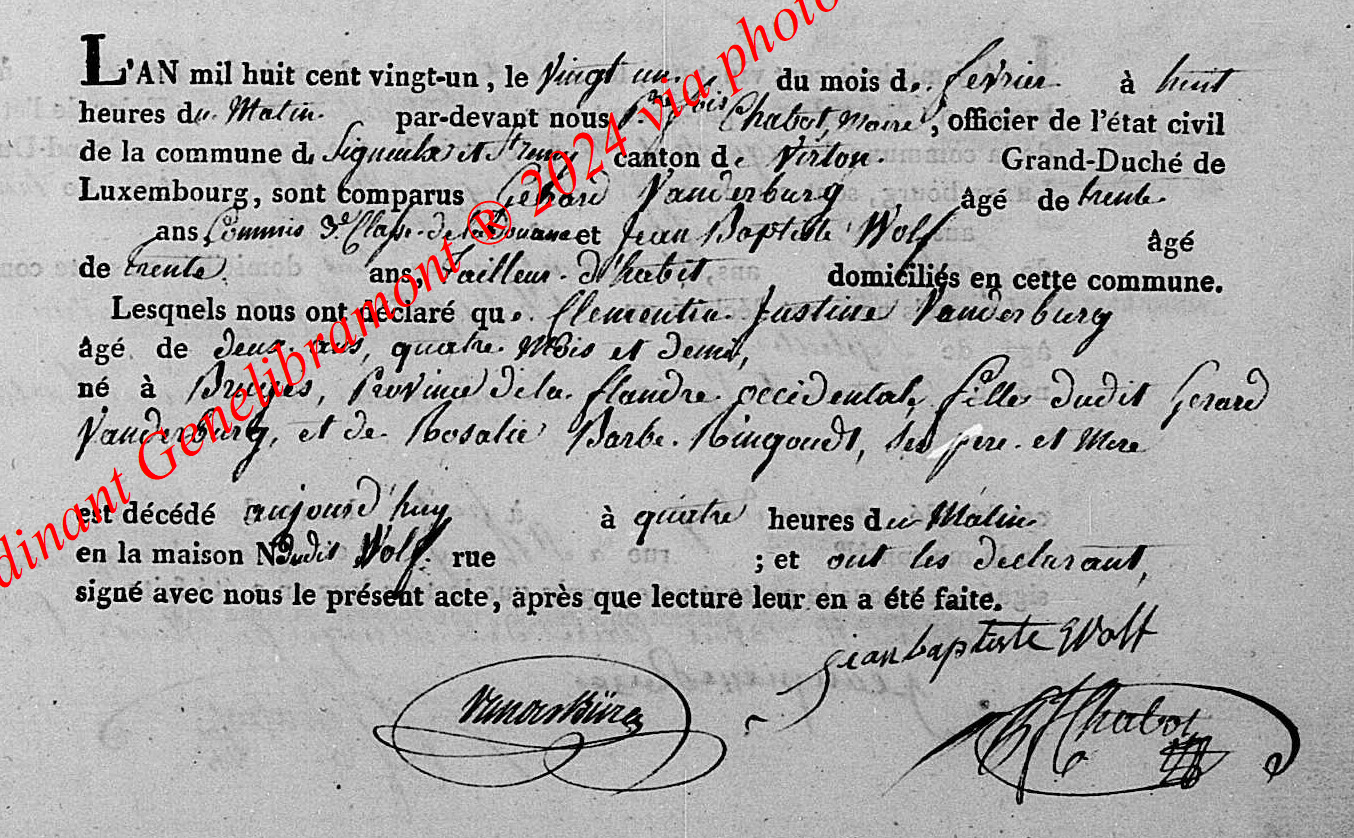 L'AN mil huit cent vingt-un, le Vingt un. du mois de fevrier à huit
heures du Matin. par-devant nous Chabot, Maire, officier de l'état civil
de la commune d canton de Virton. Grand-Duché de
Luxembourg, sont comparus Gerard Vanderburg, âgé de trente
ans Commis 3e Classe de la Douane et Jean Baptiste Wolf âgé
de trente ans, Tailleur d'habit domiciliés en cette commune.
Lesquels nous ont déclaré que Clementia Justine Vanderburg
âgé de deux ans, quatre Mois et demi,
né à Bruges, Province de la flandre occidentale, fille dudit Gerard
Vanderburg, et de Rosalie Barbe Ringoudt, ses pere et Mere
est décédé aujourd'huy à quatre heures du Matin
en la maison No. dudit Wolf. rue ; et ont les declarant,
signé avec nous le présent acte, après que lecture leur en a été faite.
jean baptiste Wolf
Vanderbürg
Chabot
dinant Genelibramont ® 2024 via photo